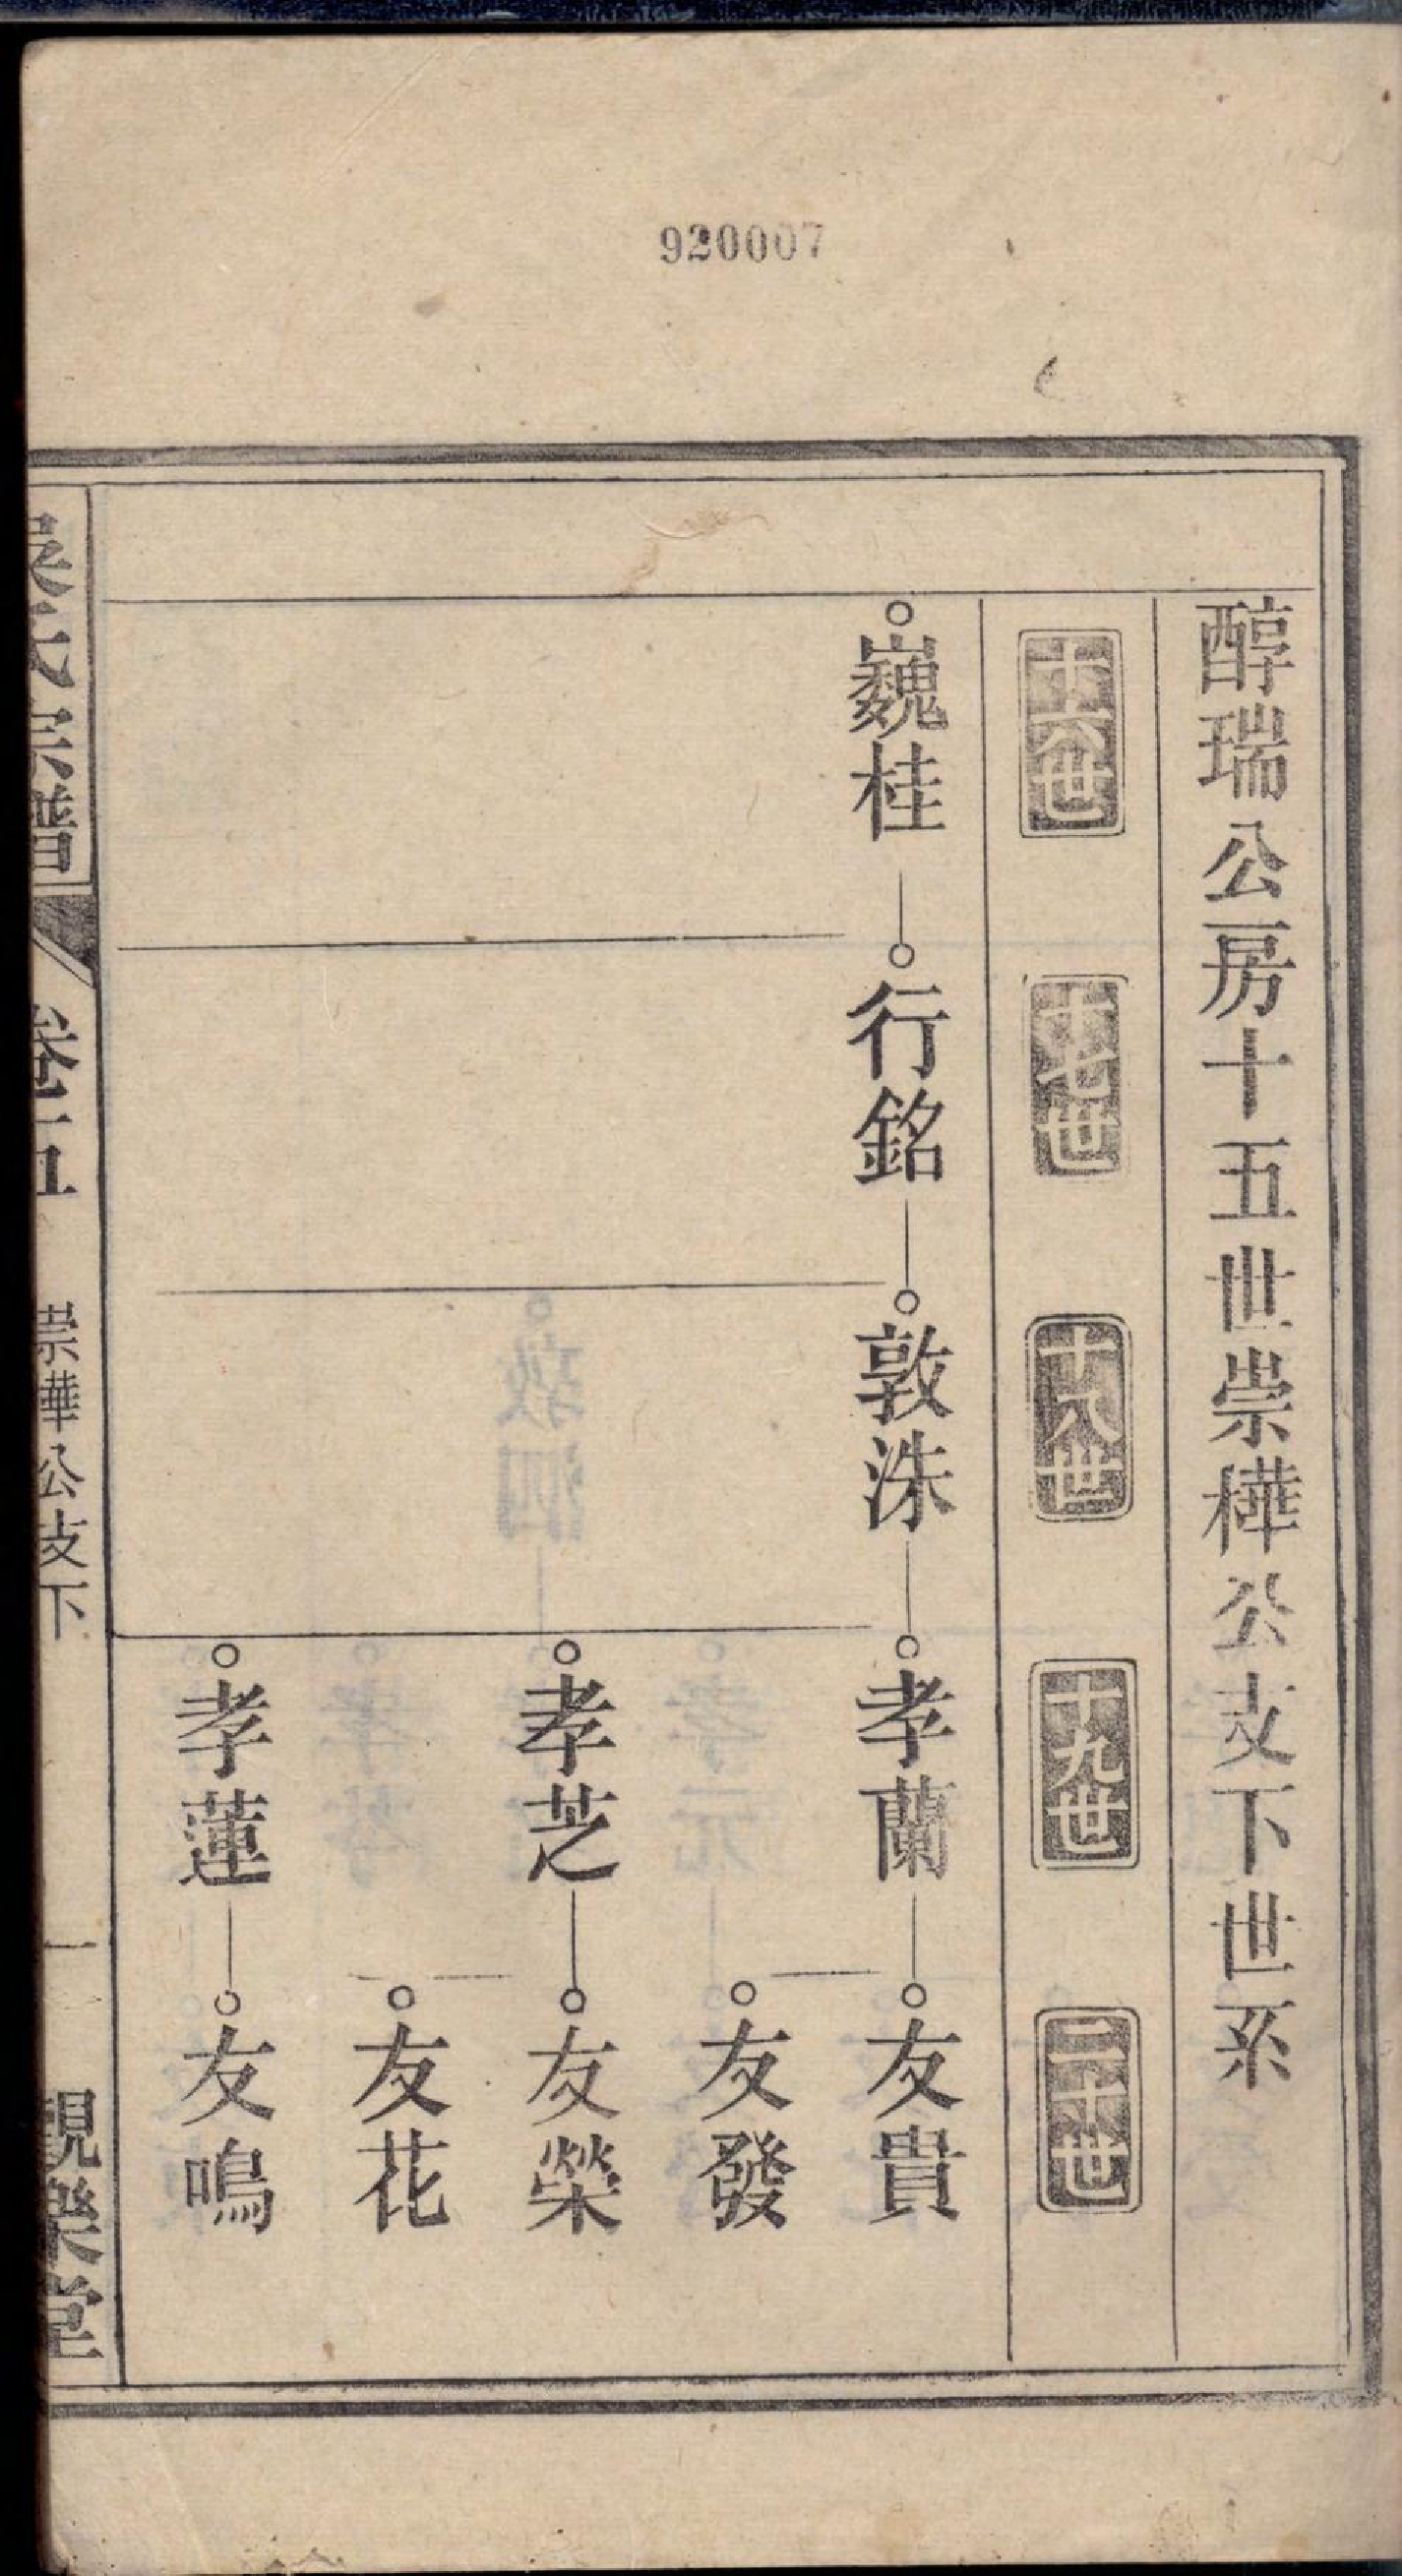 920007
醇瑞公房十五世崇樺公支下世系
十六世
十七世
十八世
十九世
二十世
巍桂
行銘
敦洙
孝蘭
友貴
友發
孝芝
友榮
友花
孝蓮
友鳴
吳氏宗譜
卷十五
崇華公支下
一
觀樂堂